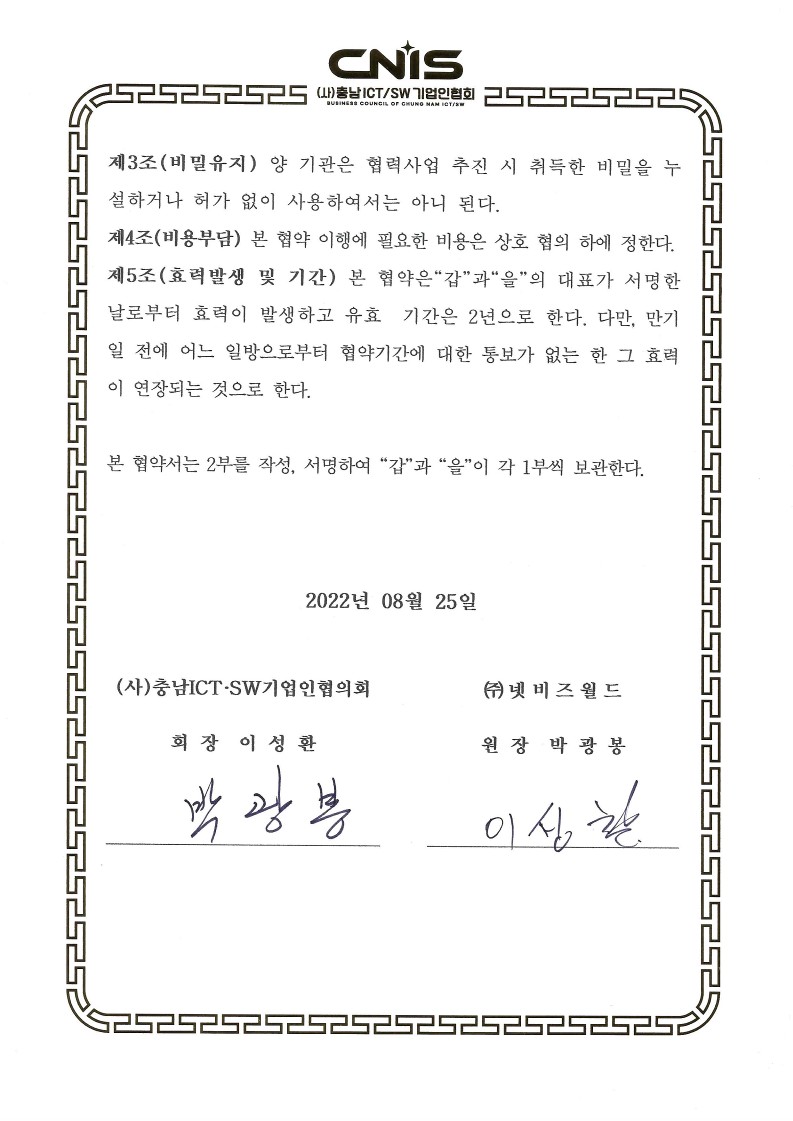 CNIS
(사)충남ICT/SW기업인협회
BUSINESS COUNCIL OF CHUNG NAM ICT/SW
제3조(비밀유지) 양 기관은 협력사업 추진 시 취득한 비밀을 누
설하거나 허가 없이 사용하여서는 아니 된다.
제4조(비용부담) 본 협약 이행에 필요한 비용은 상호 협의 하에 정한다.
제5조(효력발생 및 기간) 본 협약은“갑”과“을”의 대표가 서명한
날로부터 효력이 발생하고 유효 기간은 2년으로 한다. 다만, 만기
일 전에 어느 일방으로부터 협약기간에 대한 통보가 없는 한 그 효력
이 연장되는 것으로 한다.
본 협약서는 2부를 작성, 서명하여 “갑”과 “을”이 각 1부씩 보관한다.
2022년 08월 25일
(사)충남ICT·SW기업인협의회 ㈜넷비즈월드
회 장 이 성 환 원 장 박 광 봉
박 광 봉 이 성 환